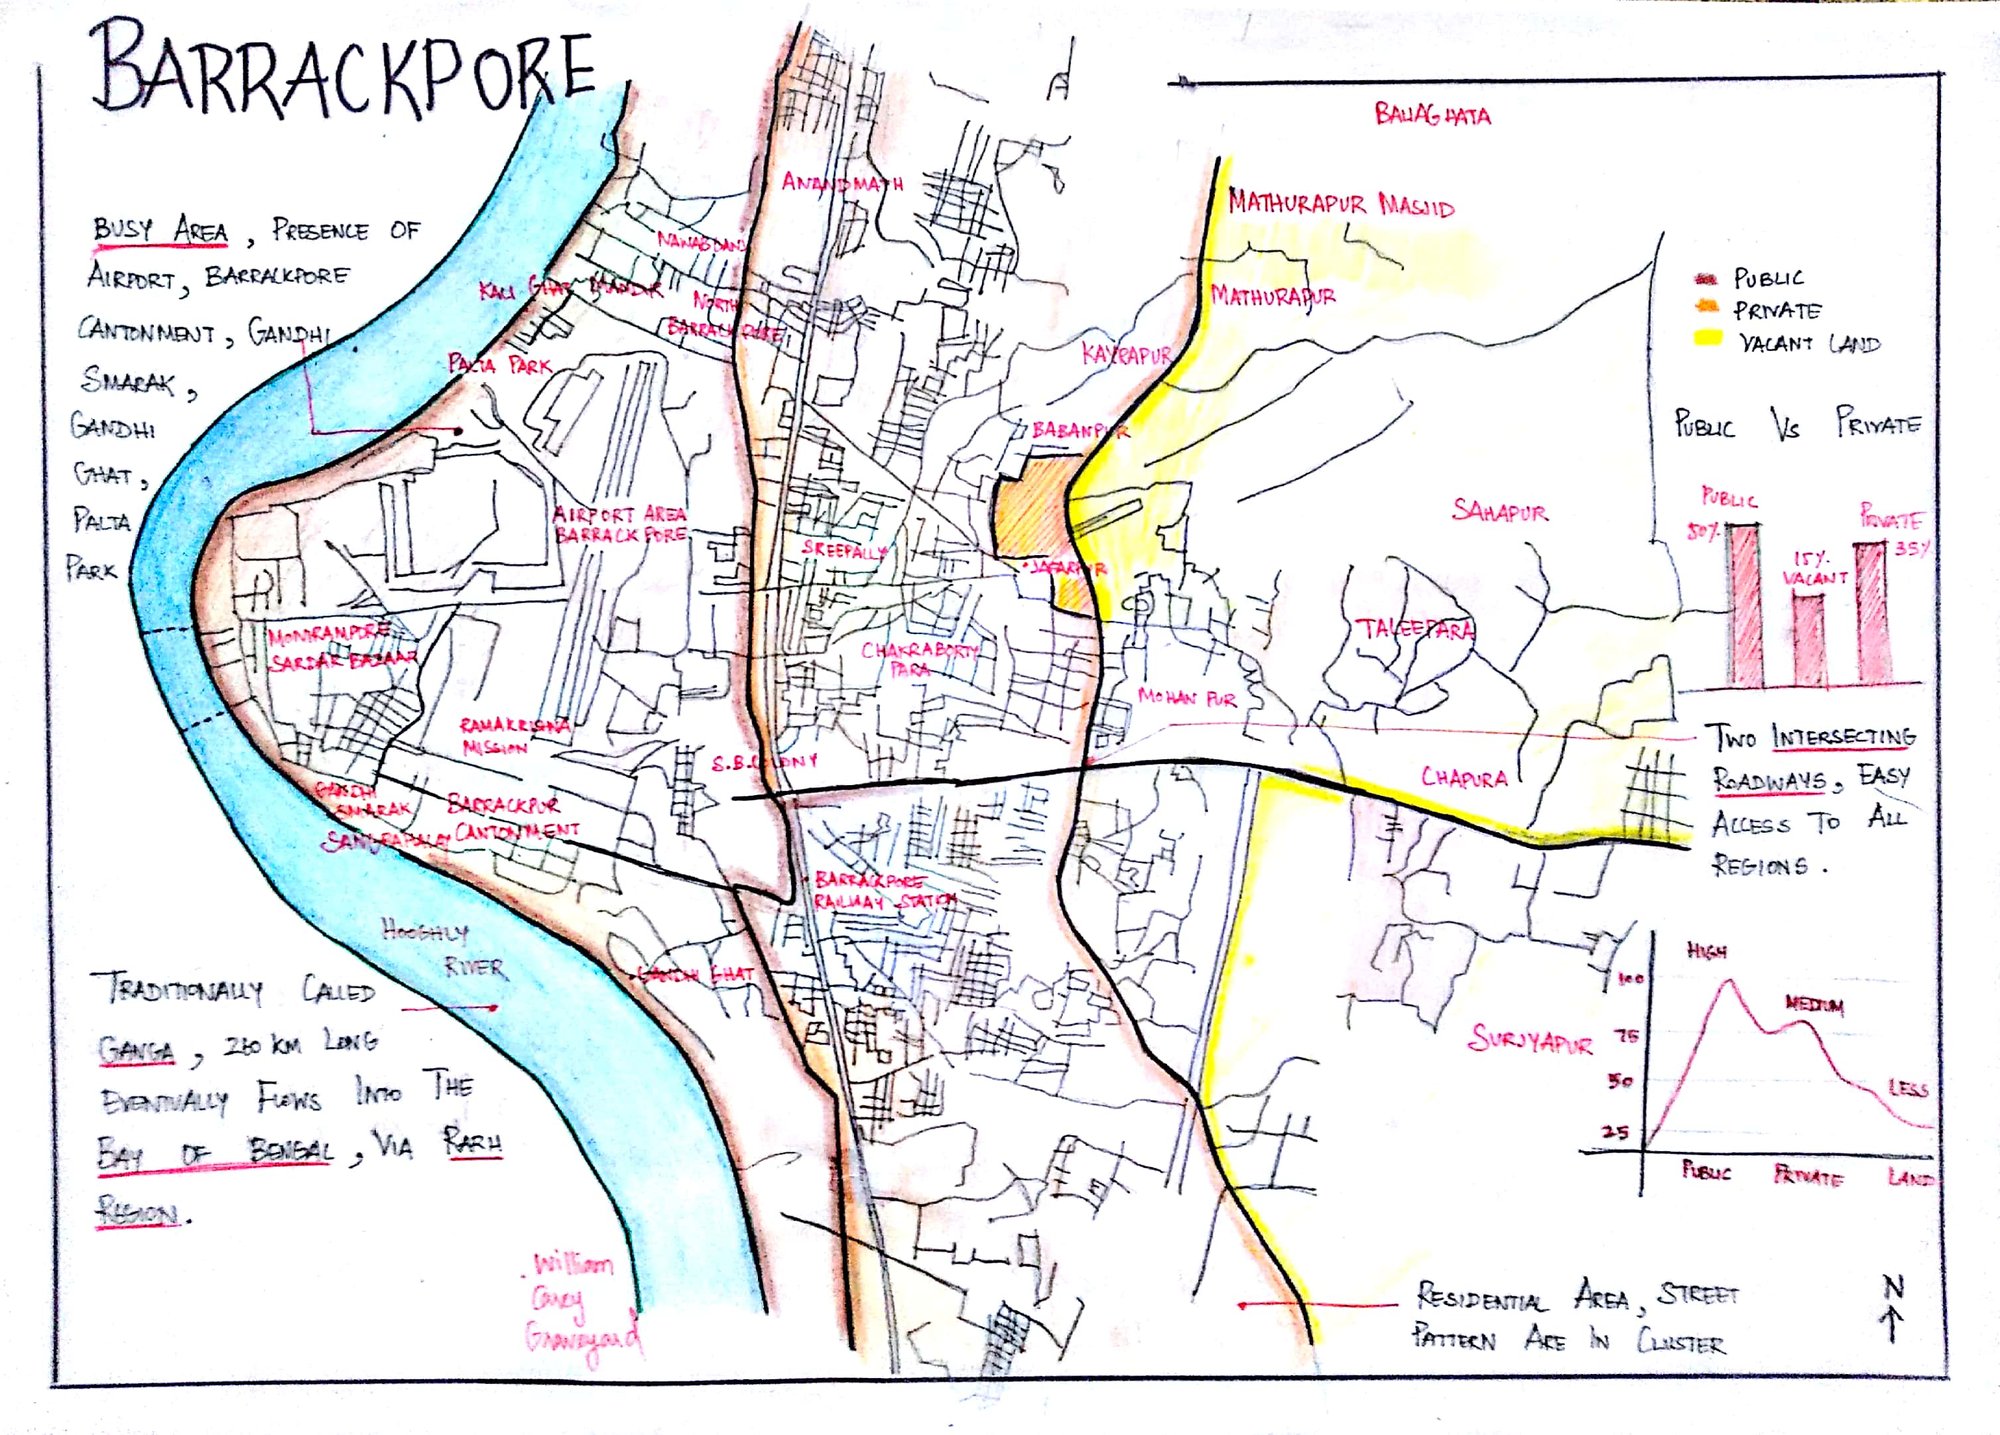 BARRACKPORE
BUSY AREA, PRESENCE OF
AIRPORT, BARRACKPORE
CANTONMENT, GANDHI
SMARAK,
GANDHI
GHAT,
PALTA
PARK
TRADITIONALLY CALLED
GANGA, 260 KM LONG
EVENTUALLY FLOWS INTO THE
BAY OF BENGAL, VIA RARH
REGION.
HOOGHLY
RIVER
William
Carey
Graveyard
ANANDMATH
KALI GHAT MANDIR
NORTH
BARRACKPORE
PALTA PARK
AIRPORT AREA
BARRACKPORE
SREEPALLY
MONIRAMPORE
SARDAR BAZAAR
CHAKRABORTY
PARA
RAMAKRISHNA
MISSION
S.B.COLONY
GANDHI
SMARAK
BARRACKPUR
CANTONMENT
BARRACKPORE
RAILWAY STATION
GANDHI GHAT
MATHURAPUR MASJID
MATHURAPUR
KAYRAPUR
BABANPUR
JAFARPUR
SAHAPUR
TALEEPARA
MOHAN PUR
CHAPURA
SURJYAPUR
PUBLIC
PRIVATE
VACANT LAND
PUBLIC VS PRIVATE
PUBLIC
50%
15%
VACANT
PRIVATE
35%
TWO INTERSECTING
ROADWAYS, EASY
ACCESS TO ALL
REGIONS.
HIGH
MEDIUM
LESS
100
75
50
25
PUBLIC PRIVATE LAND
RESIDENTIAL AREA, STREET
PATTERN ARE IN CLUSTER
N